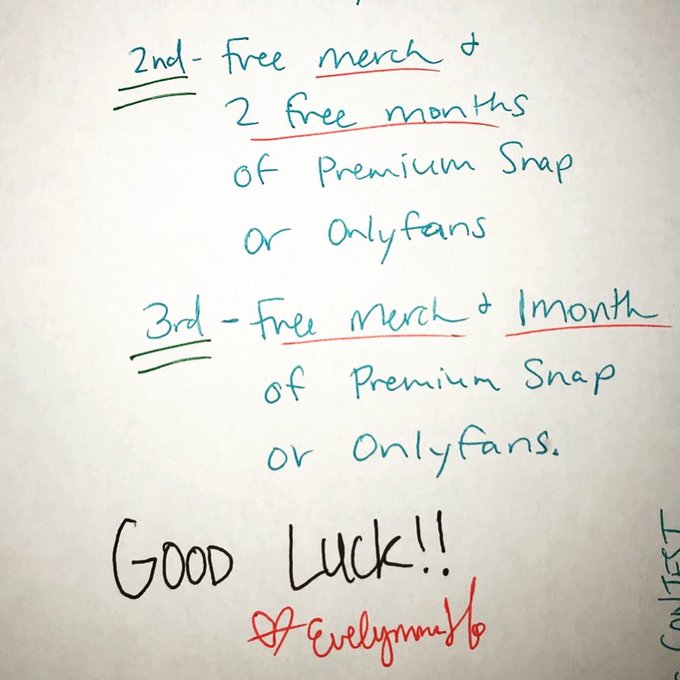 2nd - Free merch &
2 free months
of Premium Snap
or Onlyfans
3rd - Free merch & 1 month
of Premium Snap
or Onlyfans.
GOOD LUCK!!
CONTEST